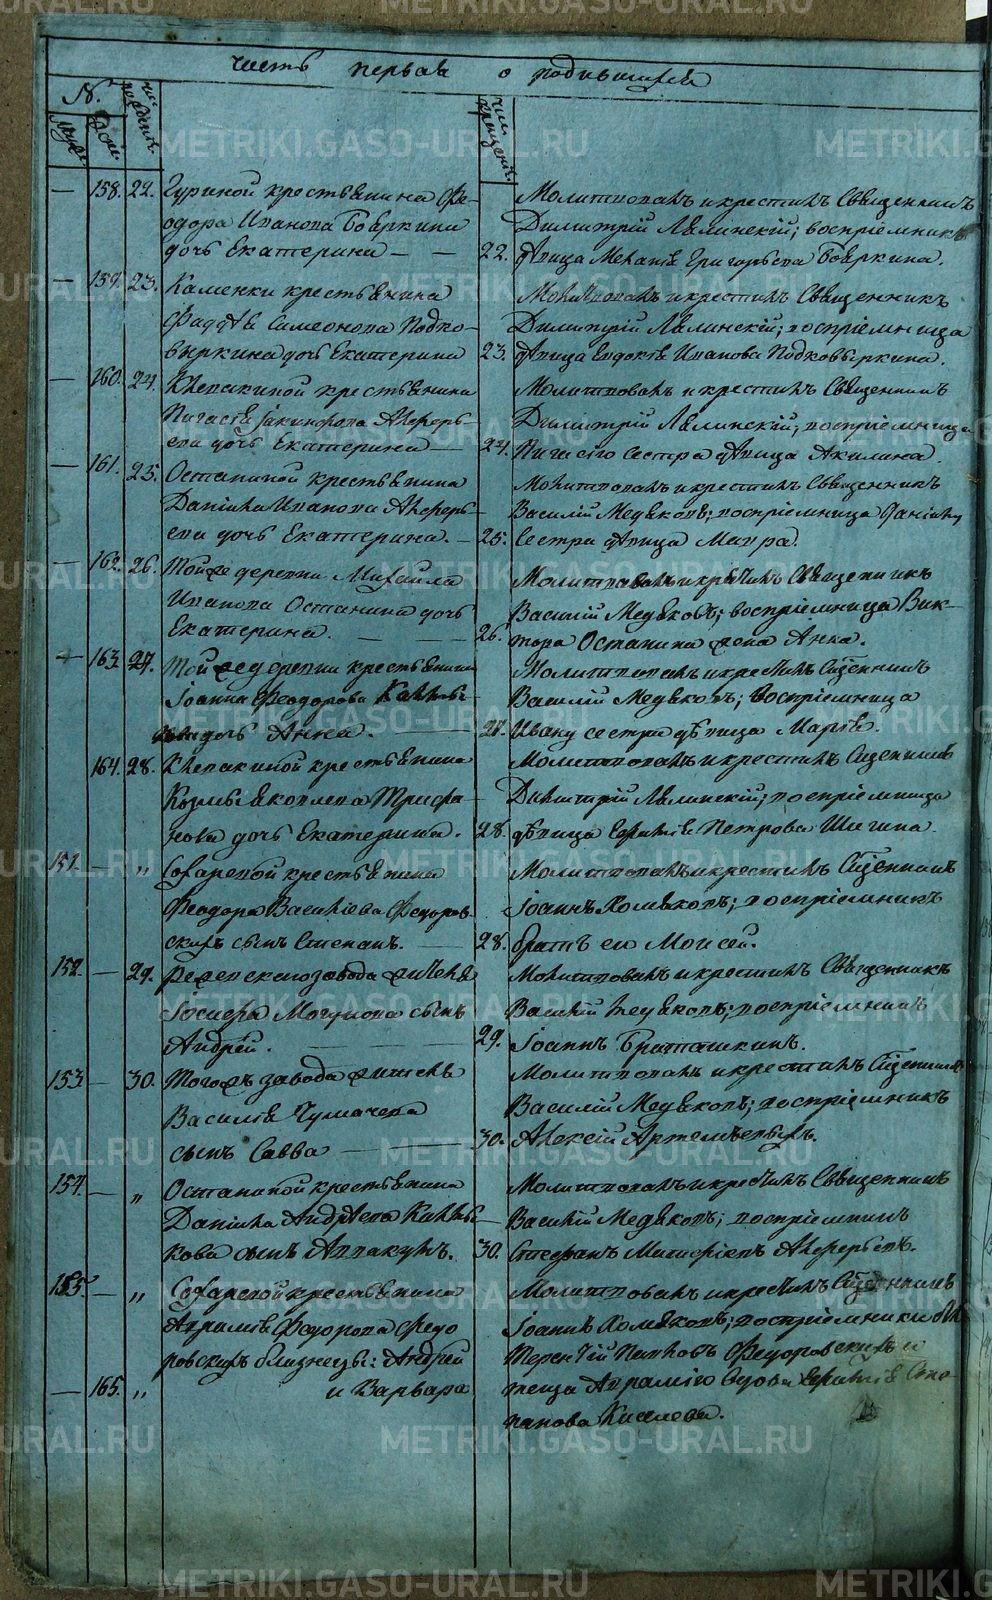 часть первая о родившихся
N.
Муж.
Жен.
чис. рожденiя
чис. крещенiя
— 158. 22. Гуриной крестьянина Фе-
одора Иванова Бояркина
дочь Екатерина — —
Молитвовалъ и крестилъ Священникъ
Димитрiй Лялинскiй; воспрiемникъ
22. дѣвица Меланiя Григорьева Бояркина.
— 159. 23. Каменки крестьянина
Фаддѣя Симеонова Подко-
выркина дочь Екатерина
Молитвовалъ и крестилъ Священникъ
Димитрiй Лялинскiй; воспрiемница
23. дѣвица Евдокiя Иванова Подковыркина.
— 160. 24. Клевакиной крестьянина
Пигасiя Iакинфова Алферь-
ева дочь Екатерина —
Молитвовалъ и крестилъ Священникъ
Димитрiй Лялинскiй; воспрiемница
24. Пигасiю сестра дѣвица Акилина.
— 161. 25. Останиной крестьянина
Данiила Иванова Алферь-
ева дочь Екатерина. —
Молитвовалъ и крестилъ Священникъ
Василiй Медяковъ; воспрiемница Данiилу
25. сестра дѣвица Мавра.
— 162. 26. Той же деревни Михаила
Иванова Останина дочь
Екатерина. — —
Молитвовалъ и крестилъ Священникъ
Василiй Медяковъ; воспрiемница Вик-
26. тора Останина жена Анна.
— 163. 27. Той же деревни крестьянина
Iоанна Феодорова
дочь Анна. —
Молитвовалъ и крестилъ Священникъ
Василiй Медяковъ; воспрiемница
27. Ивану сестра дѣвица Марiя.
164. 28. Клевакиной крестьянина
Козмы Яковлева Трифа-
нова дочь Екатерина.
Молитвовалъ и крестилъ Священникъ
Димитрiй Лялинскiй; воспрiемница
28. дѣвица Евфимiя Петрова Шигина.
151. — „ Сохаревой крестьянина
Феодора Василiева Федоров-
скихъ сынъ Степанъ. —
Молитвовалъ и крестилъ Священникъ
Iоаннъ Хомяковъ; воспрiемникъ
28. братъ его Моисей.
152. — 29. Режевскаго завода жителя
Iосифа Могунова сынъ
Андрей. —
Молитвовалъ и крестилъ Священникъ
Василiй Медяковъ; воспрiемникъ
29. Iоаннъ Браташкинъ.
153 — 30. Тогожъ завода жителя
Василiя Чумачева
сынъ Савва —
Молитвовалъ и крестилъ Священникъ
Василiй Медяковъ; воспрiемникъ
30. Алексiй Артемьевыхъ.
154. — „ Останиной крестьянина
Данiила Андрѣева
кова сынъ Аввакумъ.
Молитвовалъ и крестилъ Священникъ
Василiй Медяковъ; воспрiемникъ
30. Стефанъ Алферьевъ.
155. — „ Сохаревой крестьянина
Аврамiя Федорова Федо
ровскихъ близнецы: Андрей
— 165. „ и Варвара
Молитвовалъ и крестилъ Священникъ
Iоаннъ Хомяковъ; воспрiемники
Терентiй Федоровскихъ и
теща Аврамiю вдова Евфимiя Сте-
панова Киселева.
METRIKI.GASO-URAL.RU